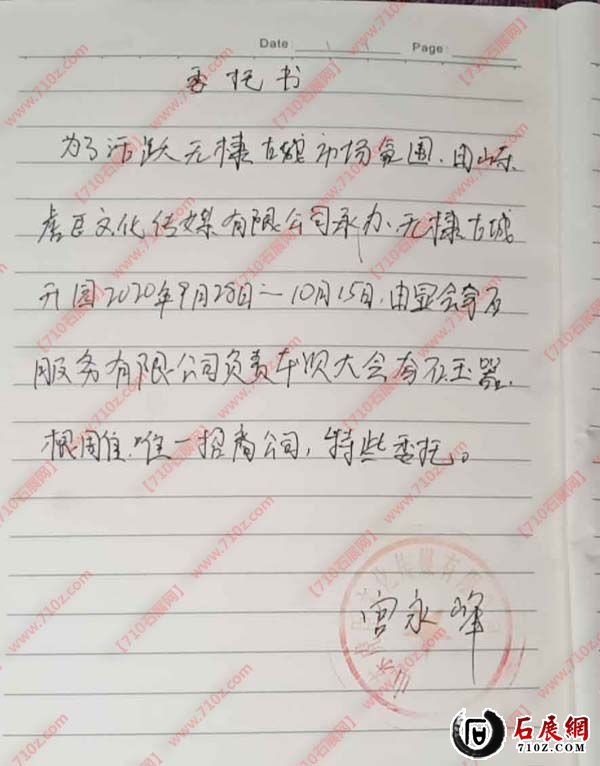 Date: Page:
委托书
为了活跃无棣古城市场氛围.由山东
文化传媒有限公司承办.无棣古城
开园2020年9月28日一10月15日.由会奇石
服务有限公司负责本次大会奇石.玉器.
根雕唯一招商公司,特些委托。
宫永峰
文化传媒有限
【710石展网】
www.710z.com
石展網
710Z.COM